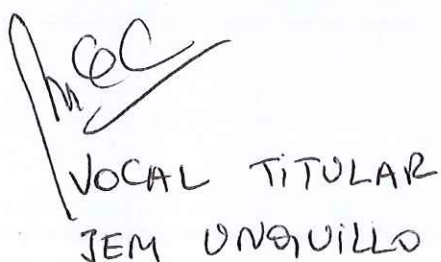 VOCAL TITULAR
JEM UNQUILLO